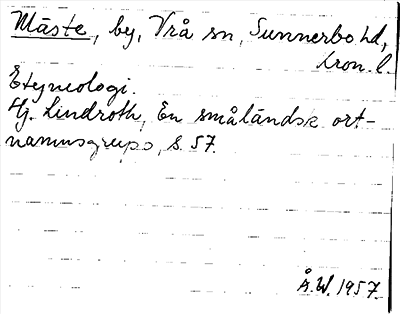 Måste, by, Vrå sn, Sunnerbo hd,
Kron. l.
Etymologi.
Hj. Lindroth, En småländsk ort-
namnsgrupp, s. 57.
Å.W. 1957.